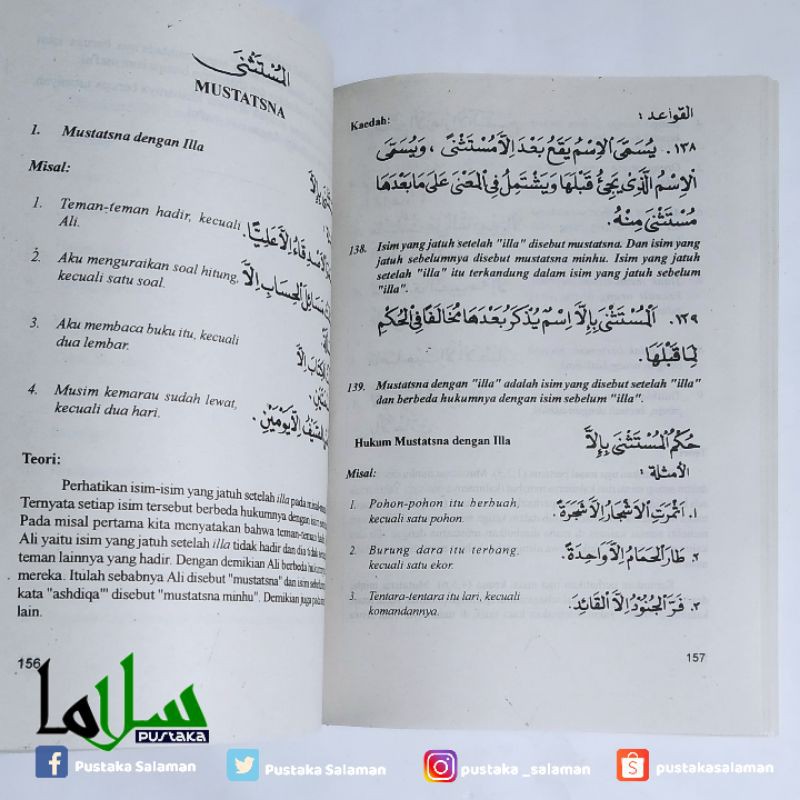 المُسْتَثْنَى
MUSTATSNA
1. Mustatsna dengan Illa
Misal:
1. Teman-teman hadir, kecuali
Ali.
إِلاَّ عَلِيًّا.
2. Aku menguraikan soal hitung,
kecuali satu soal.
مَسَائِلَ الْحِسَابِ إِلاَّ
3. Aku membaca buku itu, kecuali
dua lembar.
الْكِتَابَ إِلاَّ
4. Musim kemarau sudah lewat,
kecuali dua hari.
إِلاَّ يَوْمَيْنِ.
Teori:
Perhatikan isim-isim yang jatuh setelah illa pada
Ternyata setiap isim tersebut berbeda hukumnya dengan
Pada misal pertama kita menyatakan bahwa teman-teman
Ali yaitu isim yang jatuh setelah illa tidak hadir dan dia
teman lainnya yang hadir. Dengan demikian Ali berbeda
mereka. Itulah sebabnya Ali disebut "mustatsna" dan isim
kata "ashdiqa'" disebut "mustatsna minhu". Demikian juga
lain.
156
Kaedah:
القواعد :
١٣٨. يُسَمَّى الاِسْمُ يَقَعُ بَعْدَ اِلاَّ مُسْتَثْنًى ، وَيُسَمَّى
الاِسْمُ الَّذِيْ يَجِيْئُ قَبْلَهَا وَيَشْتَمِلُ فِي الْمَعْنَى عَلَى مَا بَعْدَهَا
مُسْتَثْنَى مِنْهُ.
138. Isim yang jatuh setelah "illa" disebut mustatsna. Dan isim yang
jatuh sebelumnya disebut mustatsna minhu. Isim yang jatuh
setelah "illa" itu terkandung dalam isim yang jatuh sebelum
"illa".
١٣٩. اَلْمُسْتَثْنَى بِاِلاَّ اِسْمٌ يُذْكَرُ بَعْدَهَا مُخَالِفًا فِي الْحُكْمِ
لِمَا قَبْلَهَا.
139. Mustatsna dengan "illa" adalah isim yang disebut setelah "illa"
dan berbeda hukumnya dengan isim sebelum "illa".
Hukum Mustatsna dengan Illa
حُكْمُ الْمُسْتَثْنَى بِاِلاَّ
Misal:
الأمثلة :
1. Pohon-pohon itu berbuah,
kecuali satu pohon.
١. اَثْمَرَتِ الاَشْجَارُ اِلاَّ شَجَرَةً.
2. Burung dara itu terbang,
kecuali satu ekor.
٢. طَارَ الْحَمَامُ اِلاَّ وَاحِدَةً.
3. Tentara-tentara itu lari, kecuali
komandannya.
٣. فَرَّ الْجُنُوْدُ اِلاَّ الْقَائِدَ.
157
سلاما
PUSTAKA
Pustaka Salaman
Pustaka Salaman
pustaka _salaman
pustakasalaman